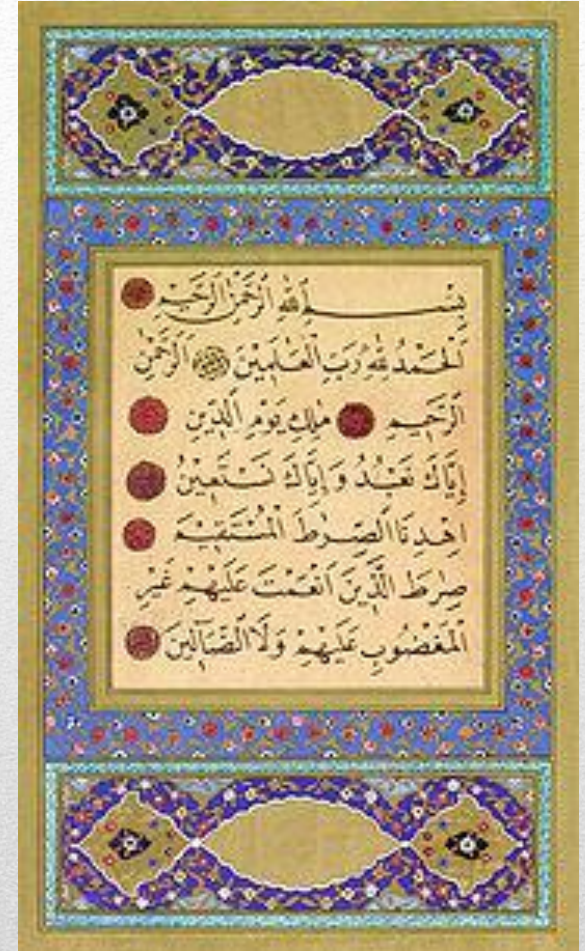 بِسْمِ اللّٰهِ الرَّحْمٰنِ الرَّحِيمِ
اَلْحَمْدُ لِلّٰهِ رَبِّ الْعَالَمِينَ الرَّحْمٰنِ
الرَّحِيمِ مَالِكِ يَوْمِ الدِّينِ
إِيَّاكَ نَعْبُدُ وَإِيَّاكَ نَسْتَعِينُ
اِهْدِنَا الصِّرَاطَ الْمُسْتَقِيمَ
صِرَاطَ الَّذِينَ اَنْعَمْتَ عَلَيْهِمْ غَيْرِ
الْمَغْضُوبِ عَلَيْهِمْ وَلَا الضَّالِّينَ